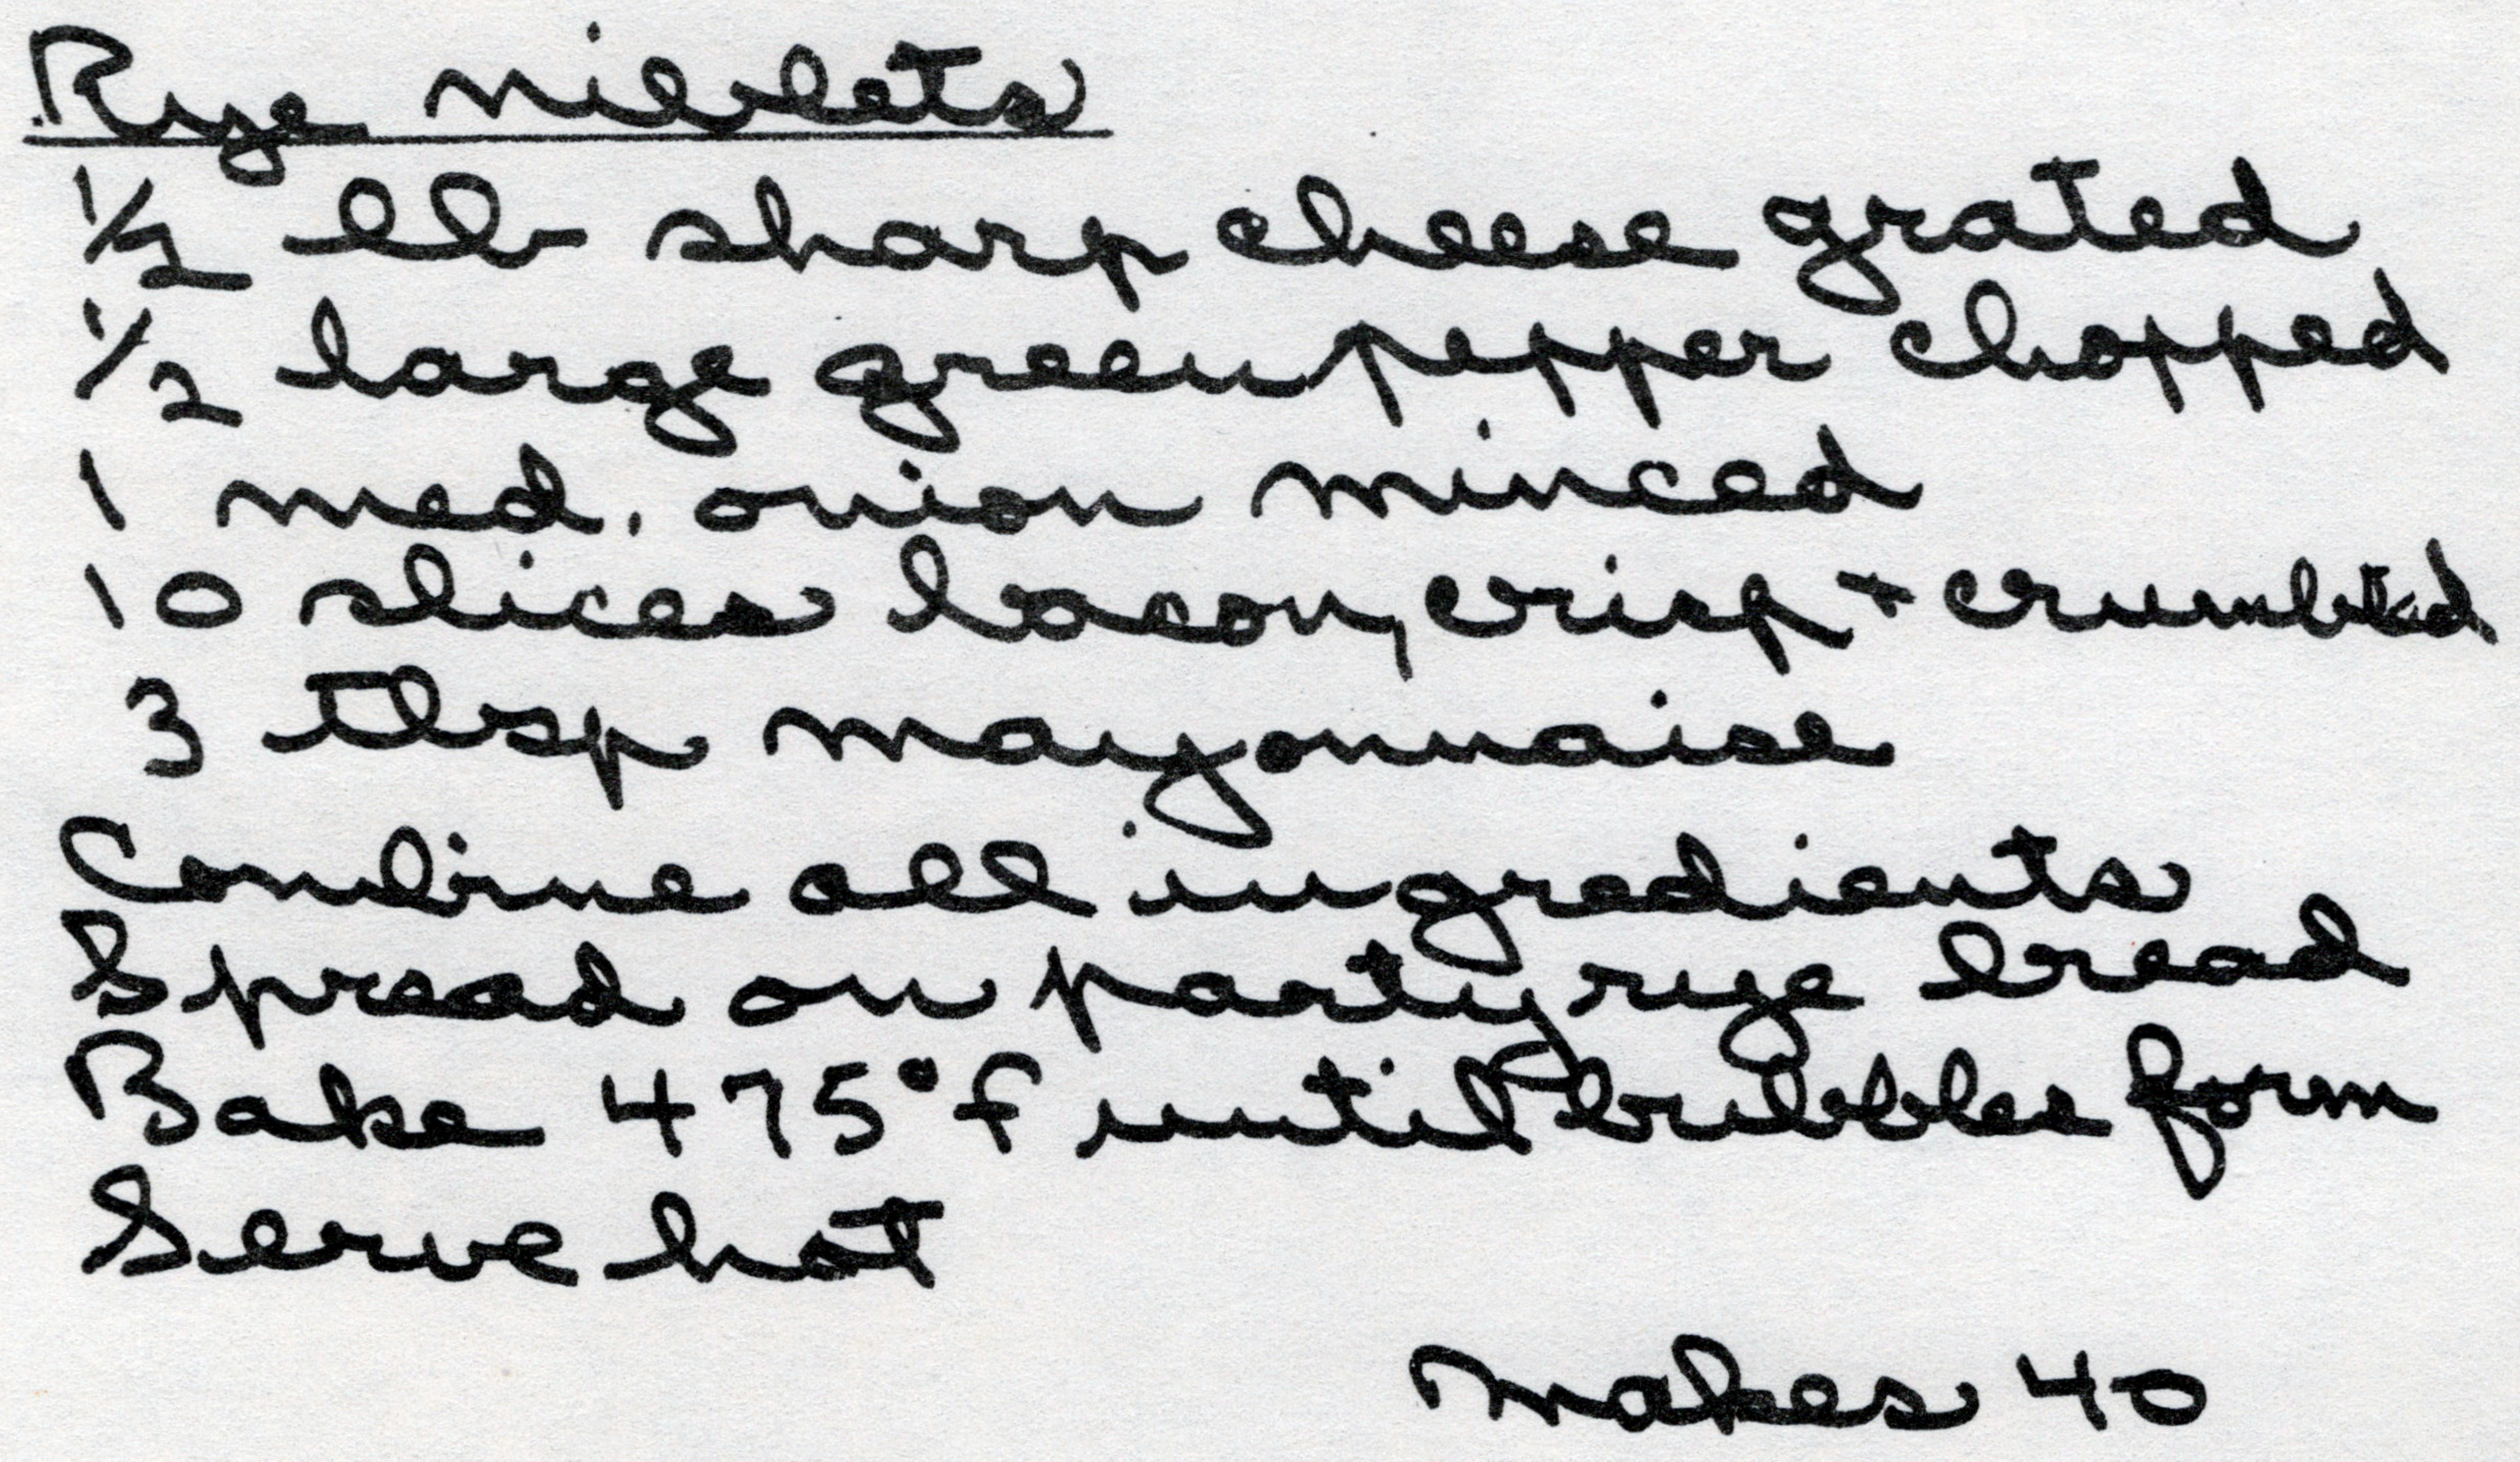 Rye niblets
1/2 lb sharp cheese grated
1/2 large green pepper chopped
1 med. onion minced
10 slices bacon, crisp + crumbled
3 tbsp mayonnaise
Combine all ingredients
Spread on party rye bread
Bake 475°f until bubbles form
Serve hot
Makes 40